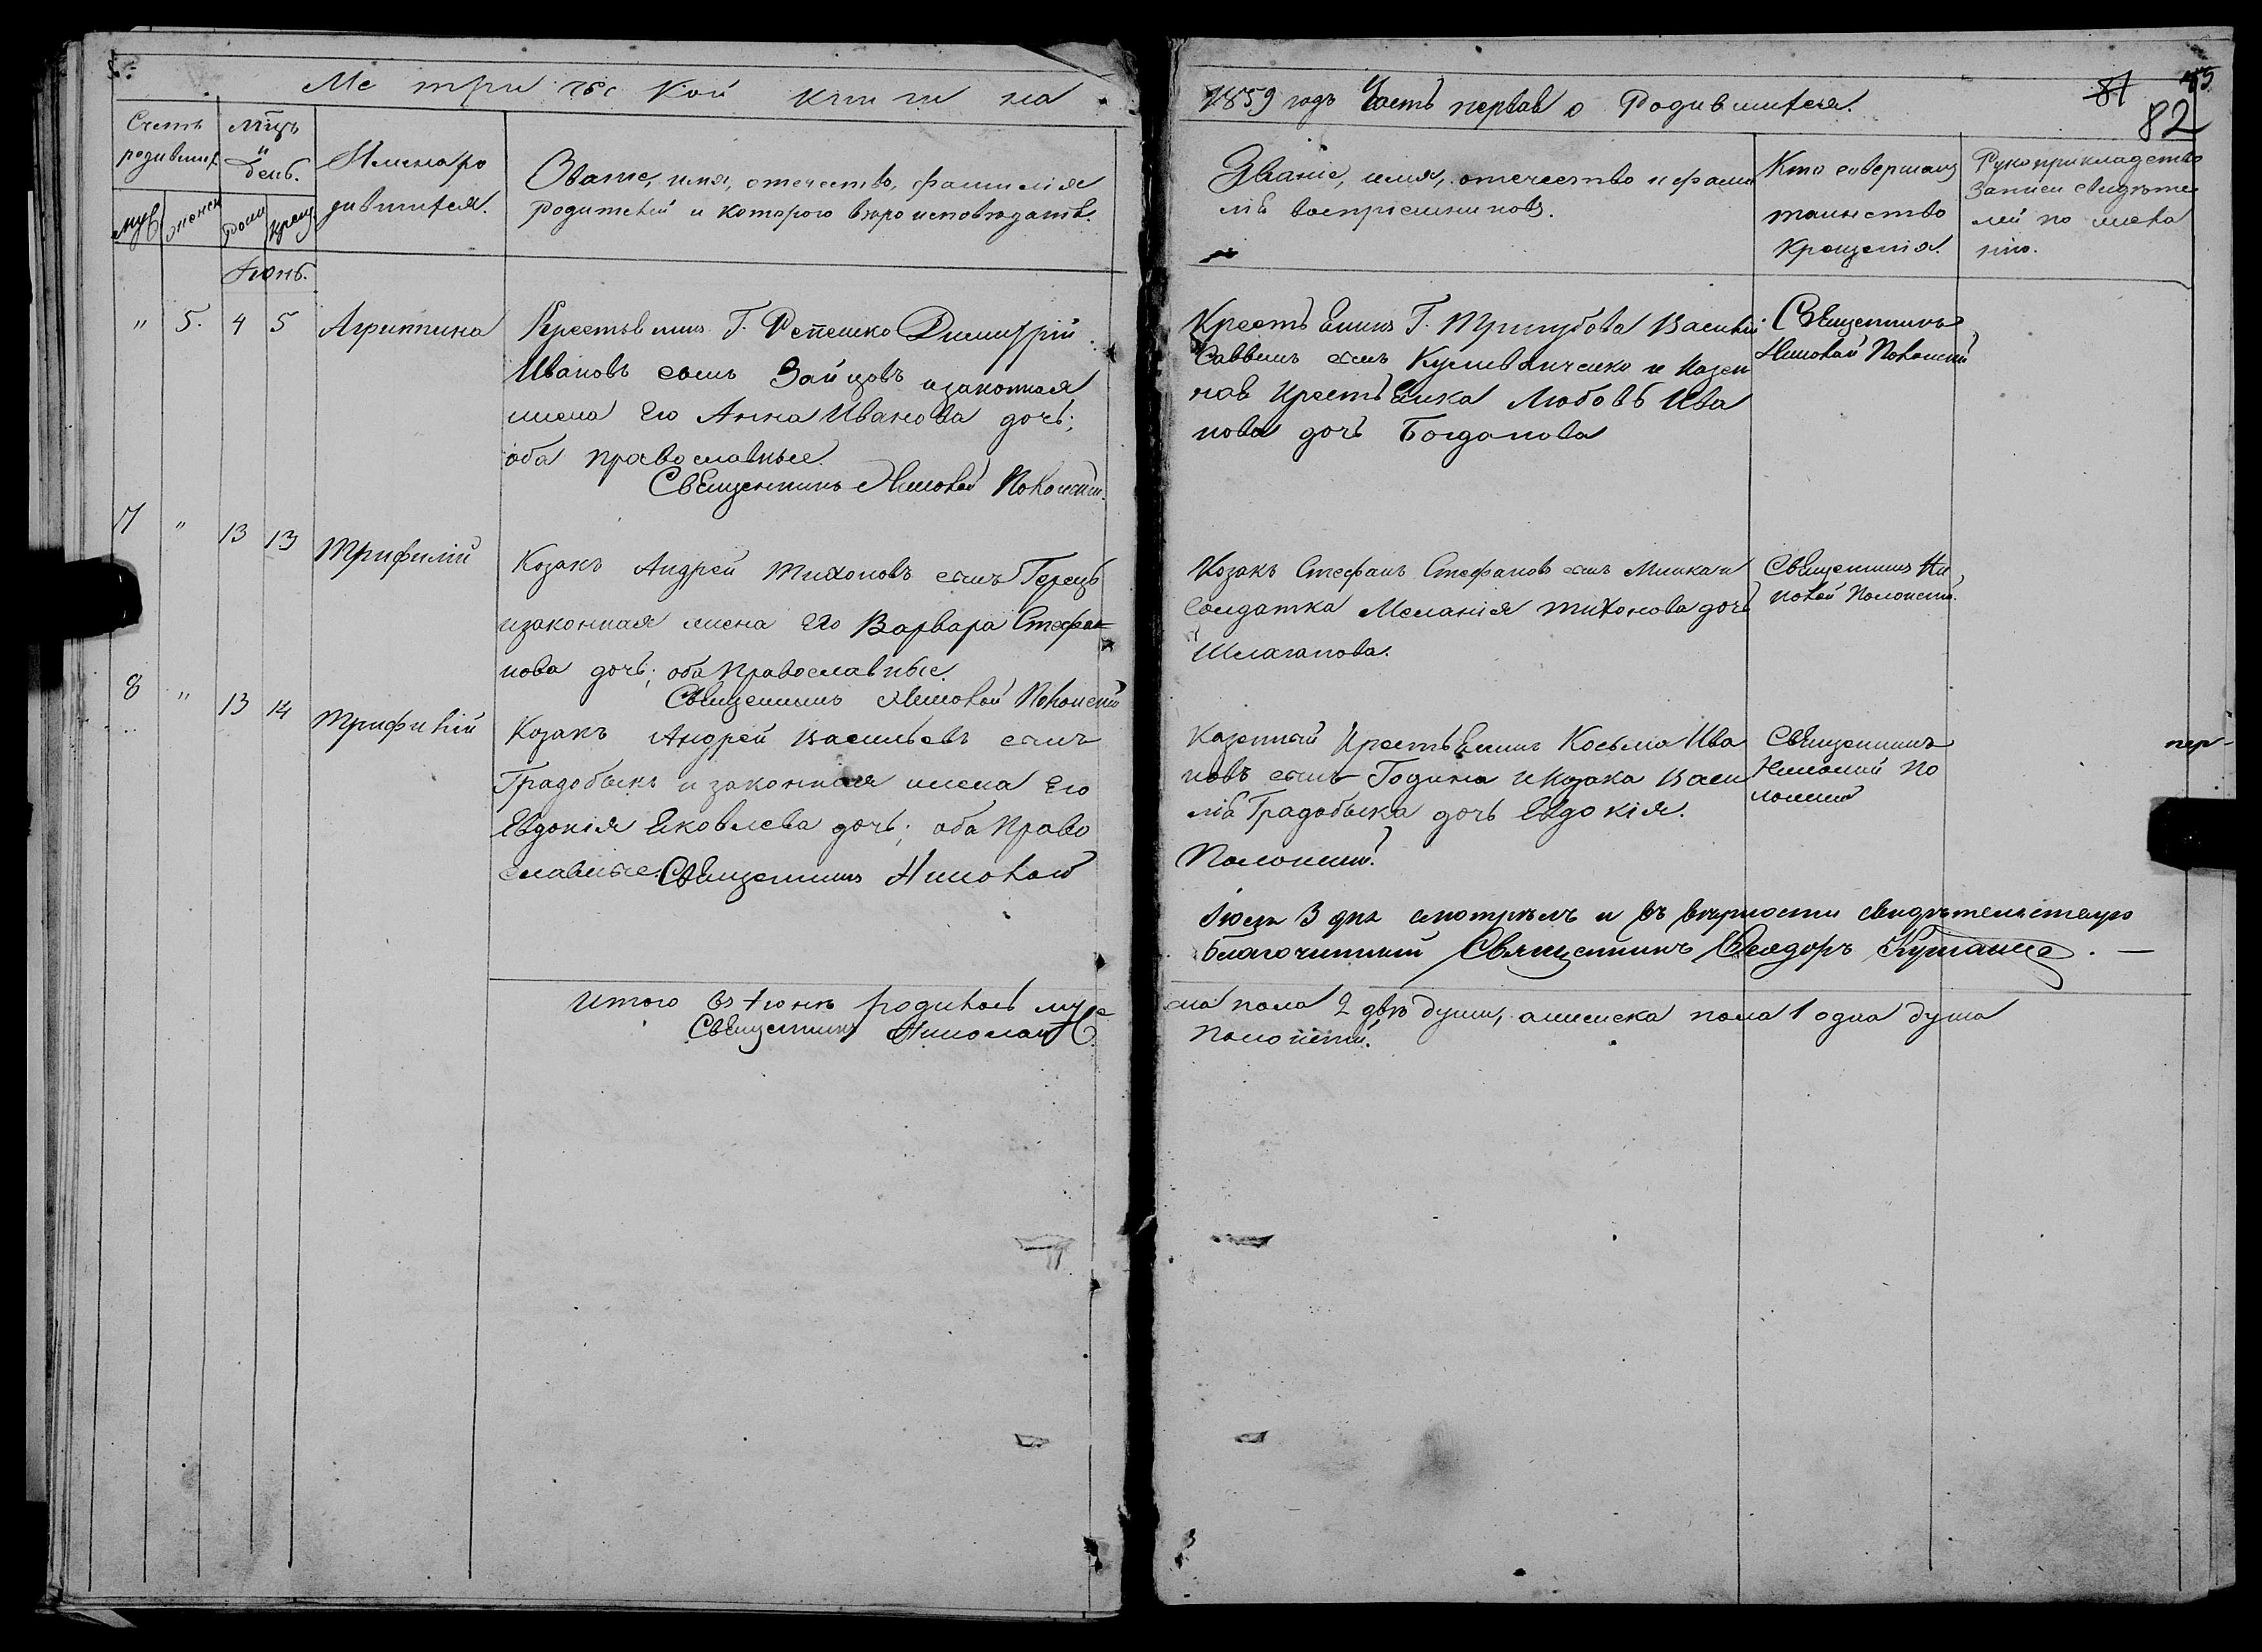 Метрической книги на
1859 годъ Часть первая о Родившихся.
81
82
Счетъ родившихъ
мцъ и день.
Имена родившихся.
Званіе, имя, отечество, фамилія
родителей и которого вѣроисповѣданія.
муж
женск
рожд
крещ
Званіе, имя, отечество и фами
лія воспріемниковъ.
Кто совершалъ
таинство
крещенія.
Рукоприкладство
записи свидѣте
лей по жела
нію.
Іюнь.
" 5. 4 5 Агриппина
Крестьянинъ Г. Репешко Димитрій
Ивановъ сынъ Зайцовъ изаконная
жена Его Анна Иванова дочь;
оба православные.
Священникъ Николай Полонскій.
Крестьянинъ Г. Тригубова Василій
Саввинъ сынъ Куливанченко и Казен
ная крестьянка Любовь Ива
нова дочь Богданова
Священникъ
Николай Полонскій
7 " 13 13 Трифилій
Козакъ Андрей Тихоновъ сынъ Герецъ
изаконная жена Его Варвара Стефа
нова дочь; оба Православные.
Священникъ Николай Полонскій
Козакъ Стефанъ Стефановъ сынъ и
Солдатка Меланія Тихонова дочь
Священникъ Ни
колай Полонскій.
8 " 13 14 Трифилій
Козакъ Андрей Васильевъ сынъ
Градобыкъ и законная жена Его
Евдокія Яковлева дочь; оба Право
славные. Священникъ Николай
Казенный Крестьянинъ Косьма Ива
новъ сынъ Година и Козака Васи
лія Градобыка дочь Евдокія.
Полонскій.
Священникъ
Николай По
лонскій
пер-
Іюля 3 дня смотрѣлъ и въ вѣрности свидѣтельствую
Благочинный Священникъ Ѳеодоръ
Итого въ Іюнѣ родилось муже
ска пола 2 двѣ души, аженска пола 1 одна душа
Священникъ Николай
Полонскій.